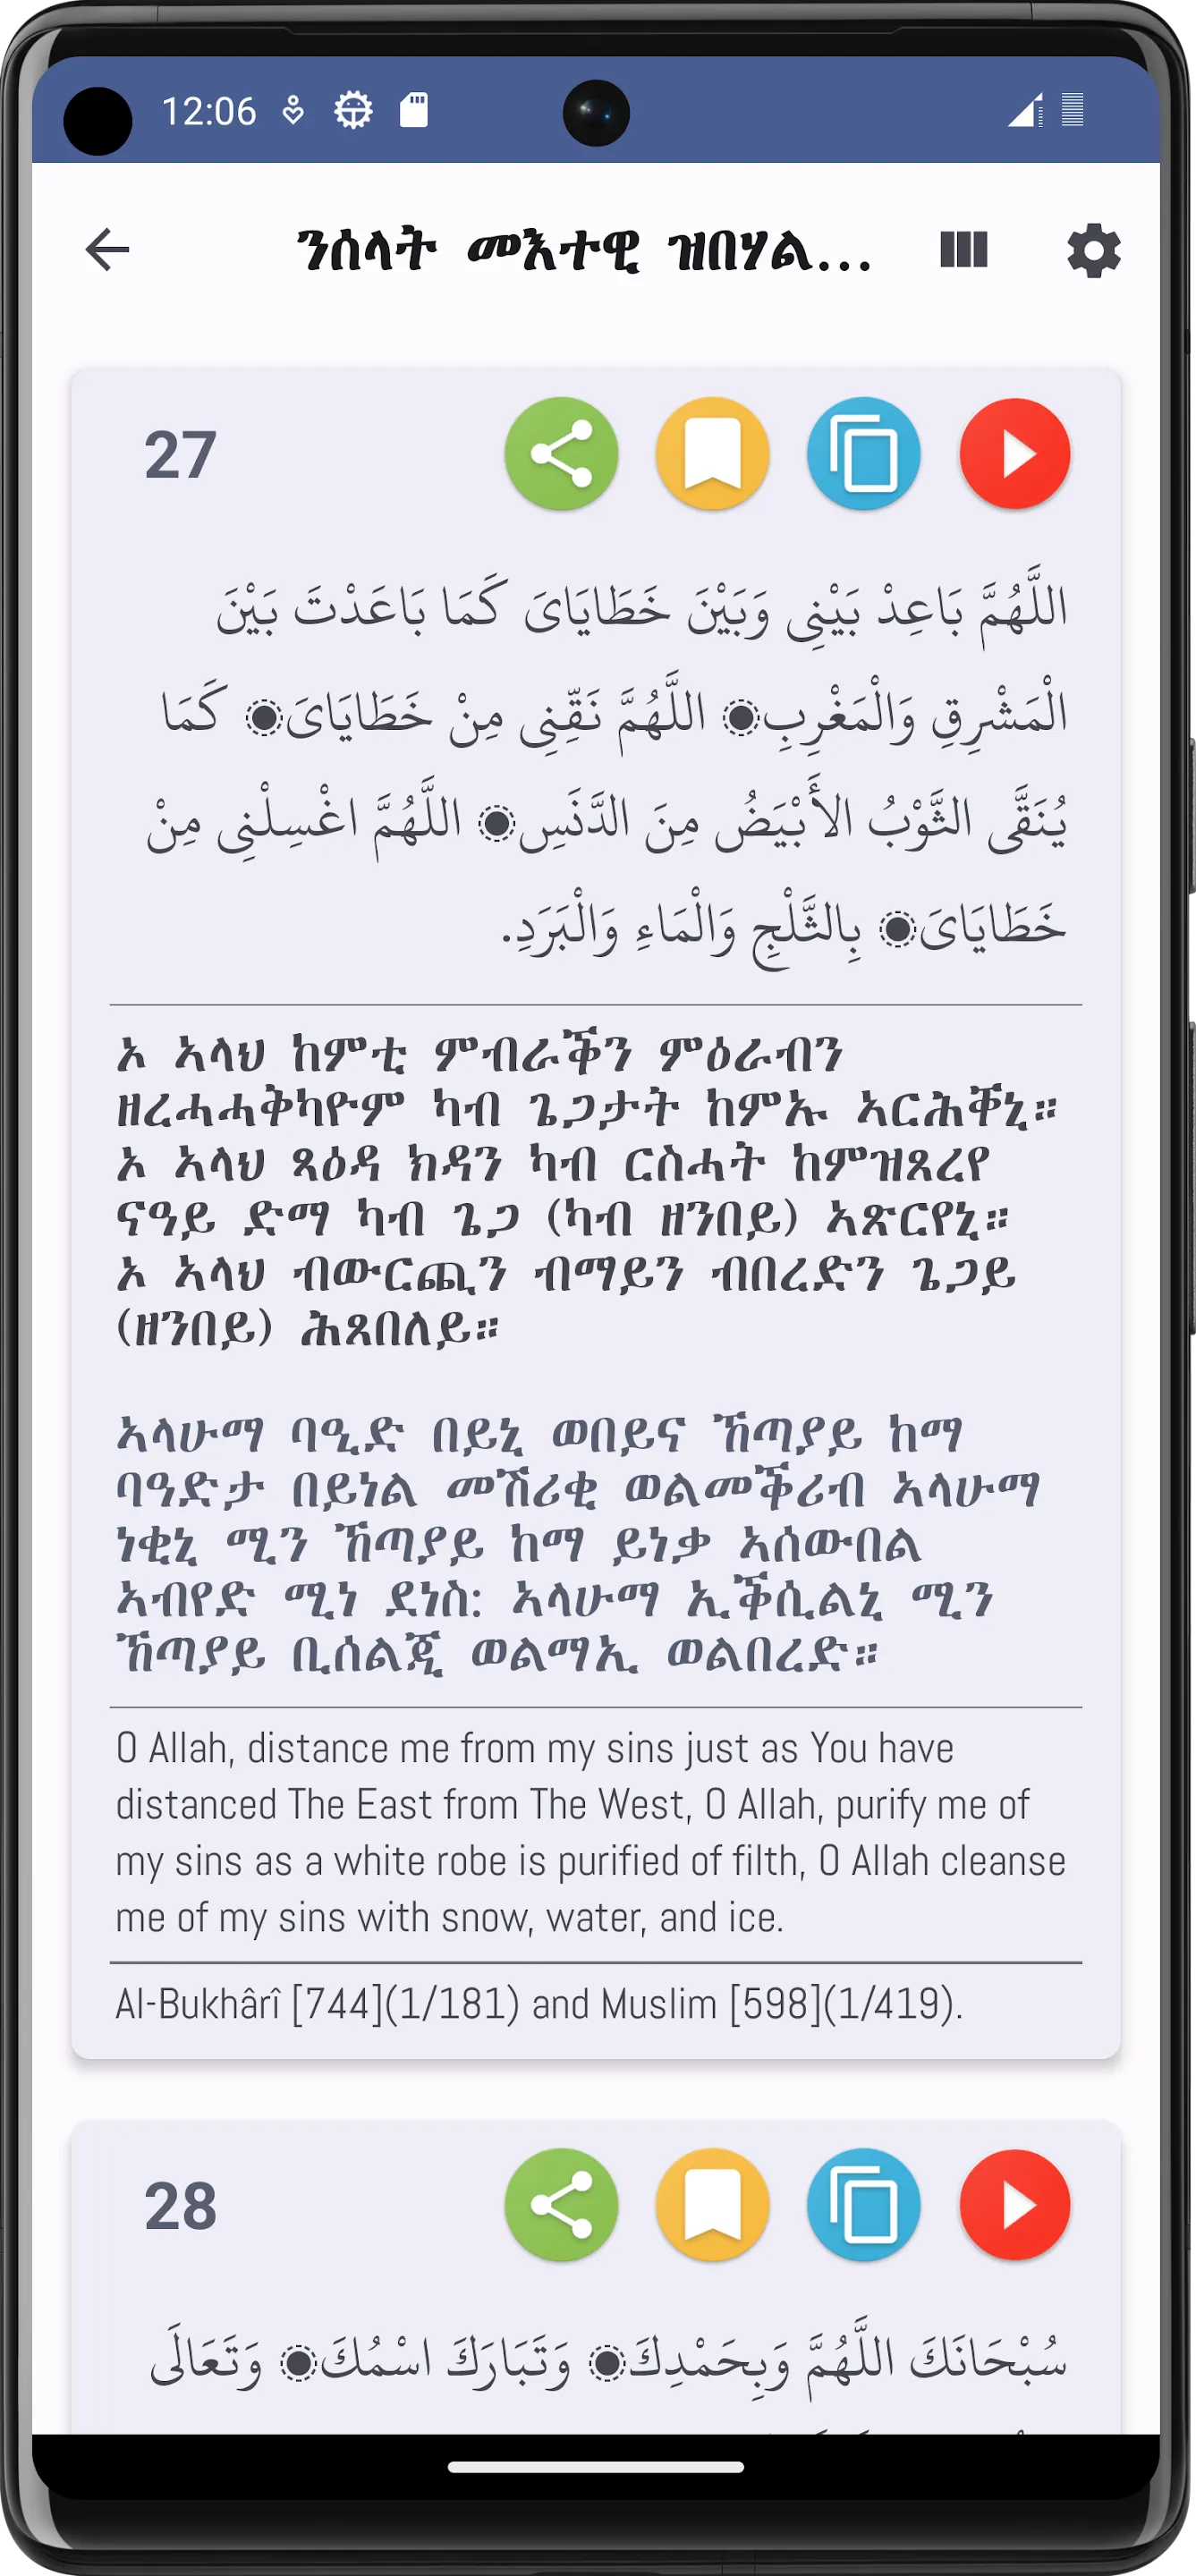 12:06
ንሰላት መእተዊ ዝበሃል...
27
اللَّهُمَّ بَاعِدْ بَيْنِى وَبَيْنَ خَطَايَاىَ كَمَا بَاعَدْتَ بَيْنَ
الْمَشْرِقِ وَالْمَغْرِبِ۝ اللَّهُمَّ نَقِّنِى مِنْ خَطَايَاىَ۝ كَمَا
يُنَقَّى الثَّوْبُ الأَبْيَضُ مِنَ الدَّنَسِ۝ اللَّهُمَّ اغْسِلْنِى مِنْ
خَطَايَاىَ۝ بِالثَّلْجِ وَالْمَاءِ وَالْبَرَدِ.
ኦ ኣላህ ከምቲ ምብራቕን ምዕራብን
ዘረሓሓቅካዮም ካብ ጌጋታት ከምኡ ኣርሕቐኒ።
ኦ ኣላህ ጻዕዳ ክዳን ካብ ርስሓት ከምዝጸረየ
ናዓይ ድማ ካብ ጌጋ (ካብ ዘንበይ) ኣጽርየኒ።
ኦ ኣላህ ብውርጪን ብማይን ብበረድን ጌጋይ
(ዘንበይ) ሕጸበለይ።
ኣላሁማ ባዒድ በይኒ ወበይና ኸጣያይ ከማ
ባዓድታ በይነል መሽሪቂ ወልመቕሪብ ኣላሁማ
ነቂኒ ሚን ኸጣያይ ከማ ይነቃ ኣሰውበል
ኣብየድ ሚነ ደነስ: ኣላሁማ ኢቕሲልኒ ሚን
ኸጣያይ ቢሰልጂ ወልማኢ ወልበረድ።
O Allah, distance me from my sins just as You have
distanced The East from The West, O Allah, purify me of
my sins as a white robe is purified of filth, O Allah cleanse
me of my sins with snow, water, and ice.
Al-Bukhârî [744](1/181) and Muslim [598](1/419).
28
سُبْحَانَكَ اللَّهُمَّ وَبِحَمْدِكَ۝ وَتَبَارَكَ اسْمُكَ۝ وَتَعَالَى